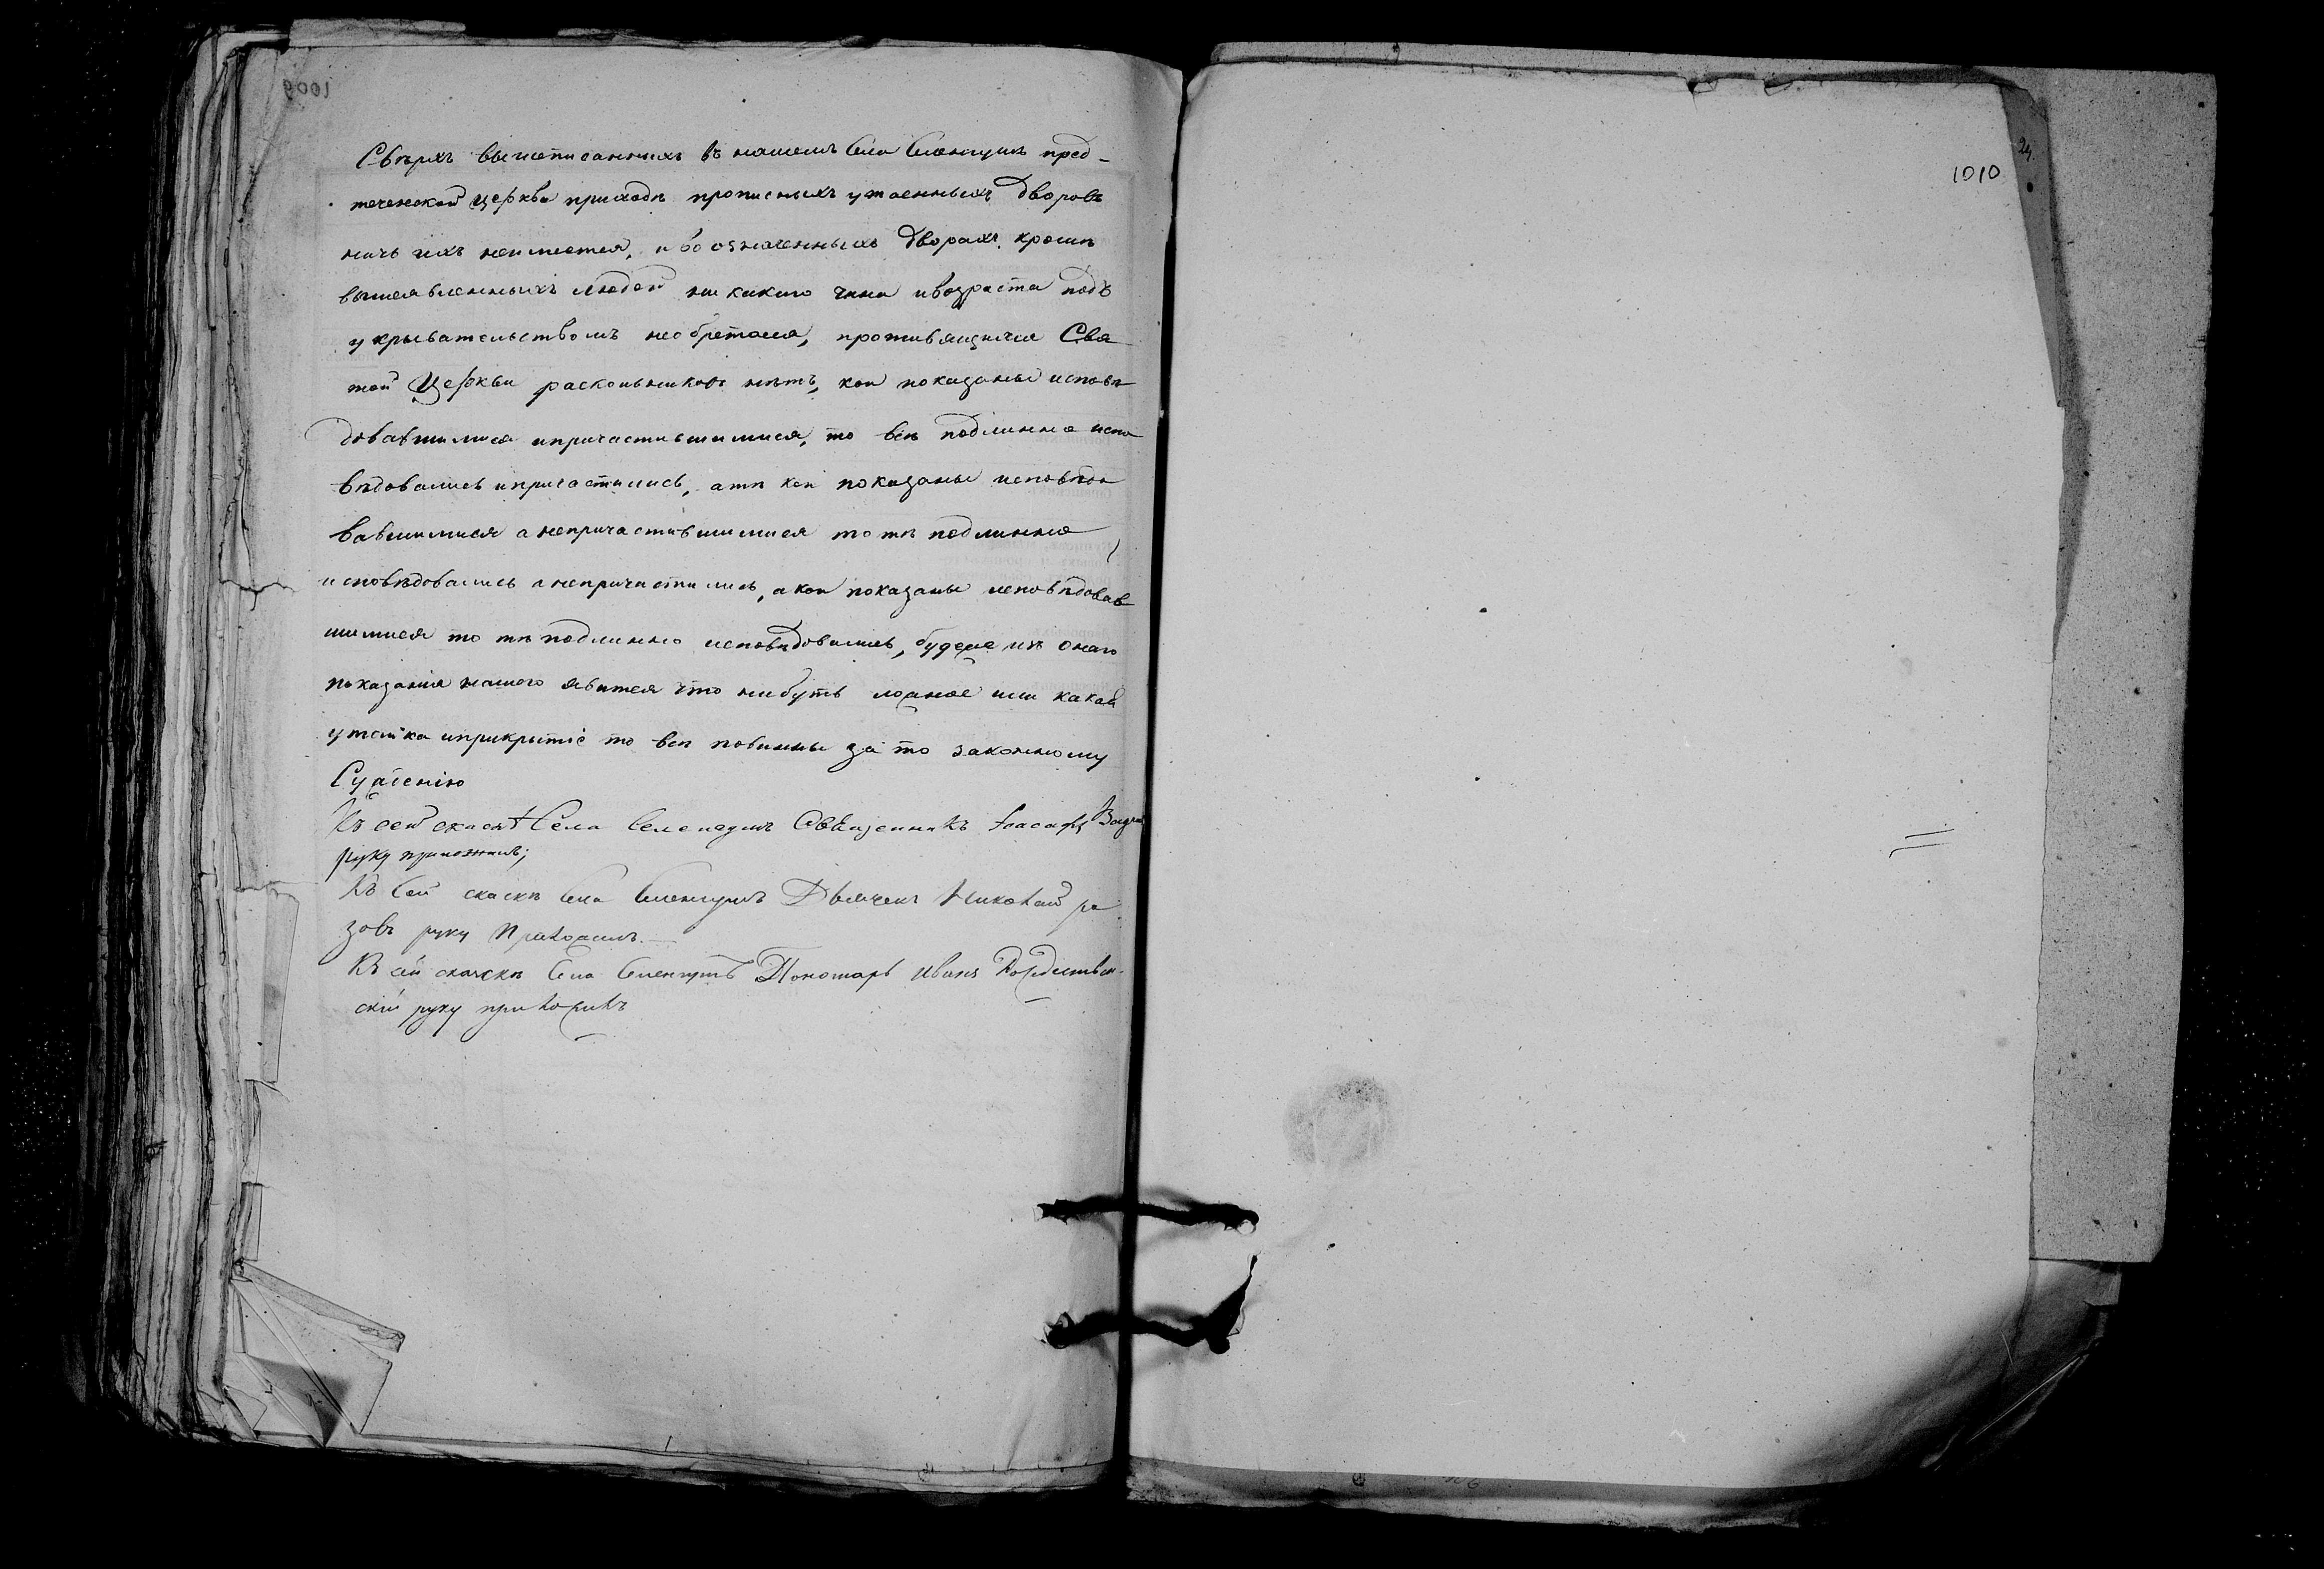 1010
24.
Сверхъ вышеписанныхъ въ нашемъ селѣ пред-
теченской церкви приходѣ прописныхъ утаенныхъ дворовъ
ничьихъ неимеется, и во означенныхъ дворахъ кромѣ
вышеявленныхъ людей никакого чина ивозраста подъ
укрывательствомъ необретается, противящихся Свя
той Церкви раскольниковъ нѣтъ, кои показаны исповѣ
довавшимися ипричастившимися, то всѣ подлинно испо
вѣдовались ипричастились, атѣ кои показаны исповѣдо
вавшимися а непричастившимися то тѣ подлинно
исповѣдовались а непричастились, а кои показаны исповѣдовав
шимися то тѣ подлинно исповѣдовались, будеже изъ онаго
показанія нашего явится что нибуть ложное или какая
утайка иприкрытіе то всѣ повинны за то законному
Сужденію
Къ сей Села Священникъ
руку приложилъ;
Къ сей скаскѣ села Дьячекъ Николай ра
зовъ руку Приложилъ.
Къ сей скаскѣ села Пономарь Иванъ Рождествен-
скій руку приложилъ